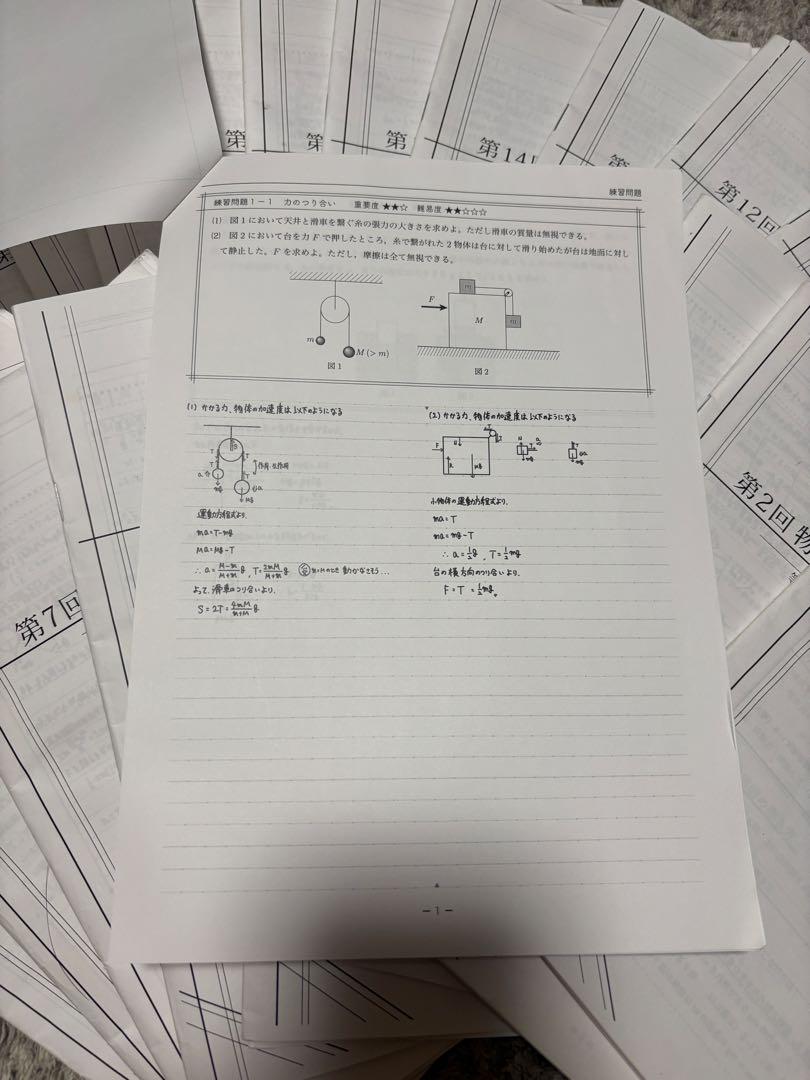 第
第
第
第14
第12回
練習問題
練習問題1-1 力のつり合い 重要度 ★★☆ 難易度 ★★☆☆☆
(1) 図1において天井と滑車を繋ぐ糸の張力の大きさを求めよ。ただし滑車の質量は無視できる。
(2) 図2において台を力 F で押したところ，糸で繋がれた2物体は台に対して滑り始めたが台は地面に対し
て静止した。F を求めよ。ただし，摩擦は全て無視できる。
m
M (> m)
図1
F
m
M
m
図2
(1) かかる力、物体の加速度は以下のようになる
S
T
T
T
T
a
mg
a
Mg
作用・反作用
運動方程式より、
ma = T - mg
Ma = Mg - T
∴ a = (M-m)/(M+m) g , T = 2mM/(M+m) g
m=Mのとき 動かなそう...
よって、滑車のつり合いより、
S = 2T = 4mM/(m+M) g
(2) かかる力、物体の加速度は以下のようになる
F
N
R
Mg
T
T
N
T
a
mg
T
a
mg
小物体の運動方程式より、
ma = T
ma = mg - T
∴ a = 1/2 g , T = 1/2 mg
台の横方向のつり合いより、
F = T = 1/2 mg
-1-
第7回
第2回 物